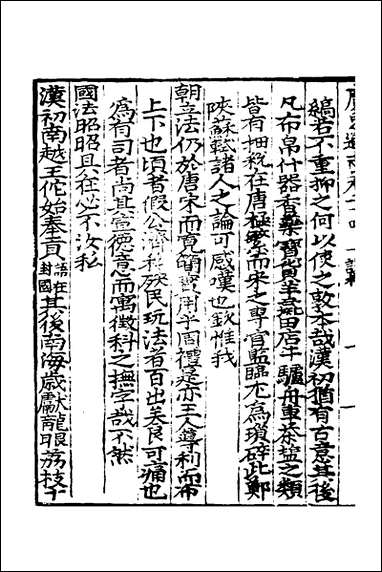 縞若不重抑之何以使之敦本哉漢初猶有古意其後
凡布帛什器香藥寶貨羊彘田店牛驢舟車茶鹽之類
皆有抽稅在唐極繁而宋之專官監臨尤為瑣碎此鄭
陜蘇軾諸人之論可感嘆也欽惟我
朝立法仍於唐宋而寬簡實用乎周禮是亦王人導利而布
上下也頃者假公濟私殃民玩法者百出矣良可痛也
為有司者尚其宣德意而寓徵科之撫字哉不然
國法昭昭具在必不汝私
漢初南越王佗始奉貢語在封國其後南海歲獻龍眼荔枝十